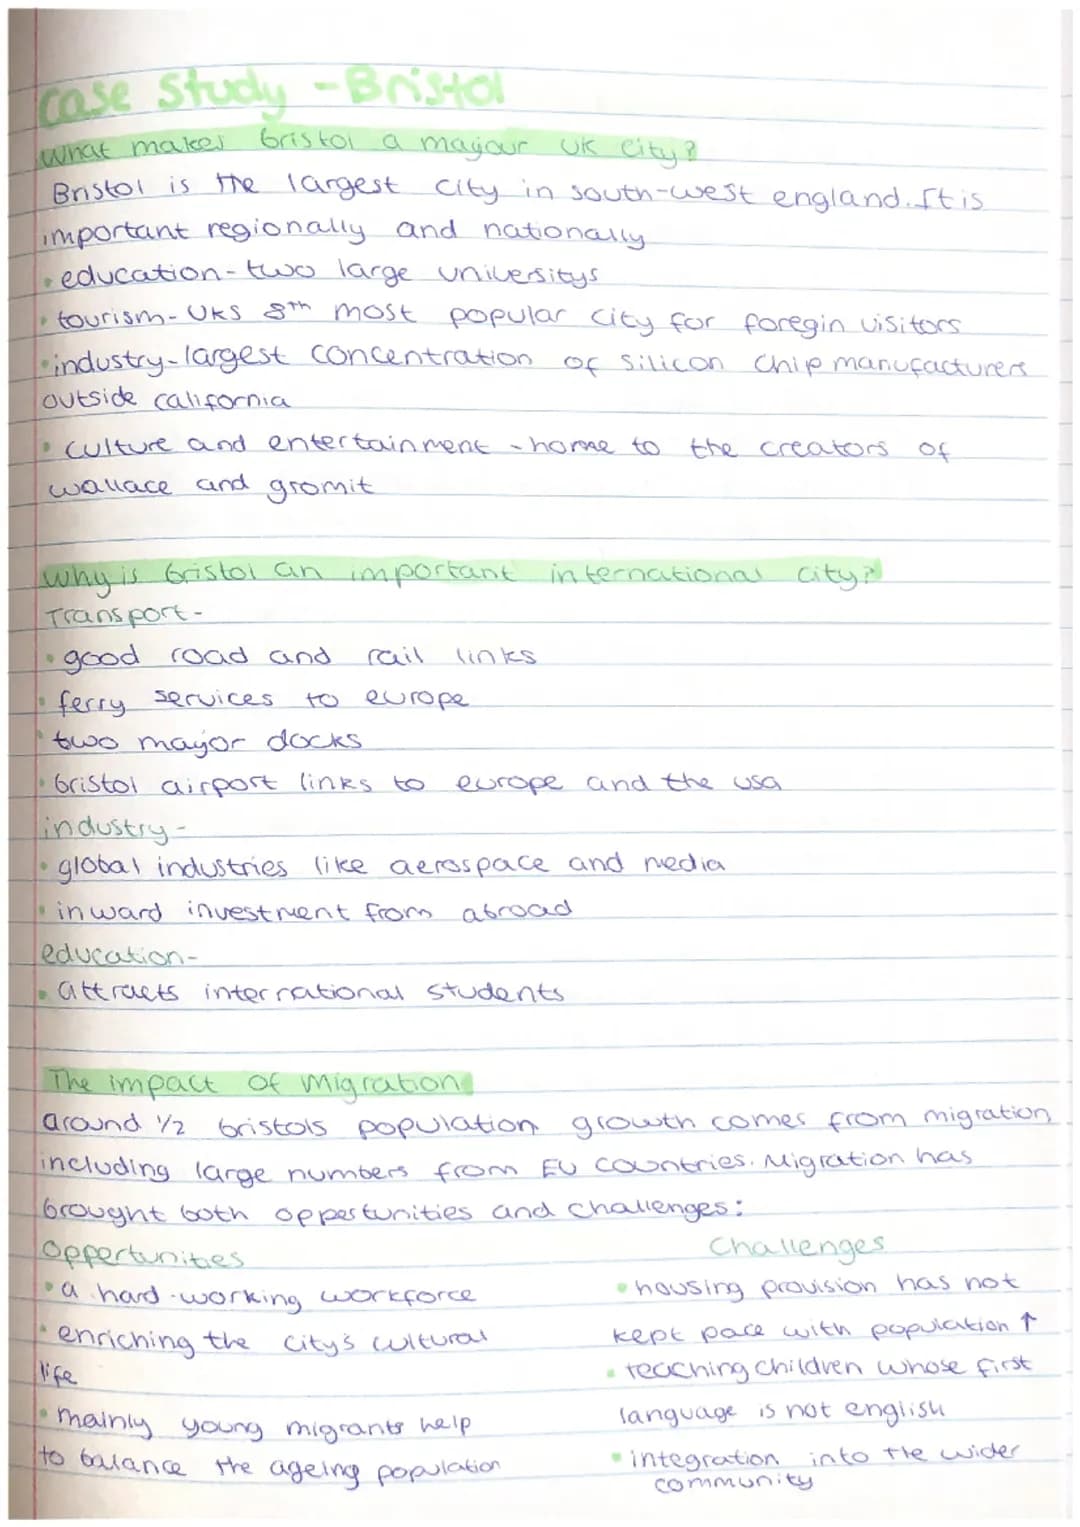 Case Study - Bristol
What makes bristol a mayour UK city?
Bristol is the largest city in south-west england. It is
important regionally and nationally
• education - two large universitys
• tourism - UKs 8th most popular city for foregin visitors
• industry - largest concentration of silicon chip manufacturers
outside california
• culture and entertainment - home to the creators of
wallace and gromit
Why is bristol an important international city?
Transport -
• good road and rail links
• ferry services to europe
• two mayor docks
• bristol airport links to europe and the usa
industry -
• global industries like aerospace and media
• inward investment from abroad
education -
• attracts international students
The impact of migration
around 1/2 bristols population growth comes from migration
including large numbers from EU countries. Migration has
brought both oppertunities and challenges:
oppertunities
• a hard-working workforce
• enriching the city's cultural
life
• mainly young migrants help
to balance the ageing population
Challenges
• housing provision has not
kept pace with population ↑
• teaching children whose first
language is not english
• integration into the wider
community